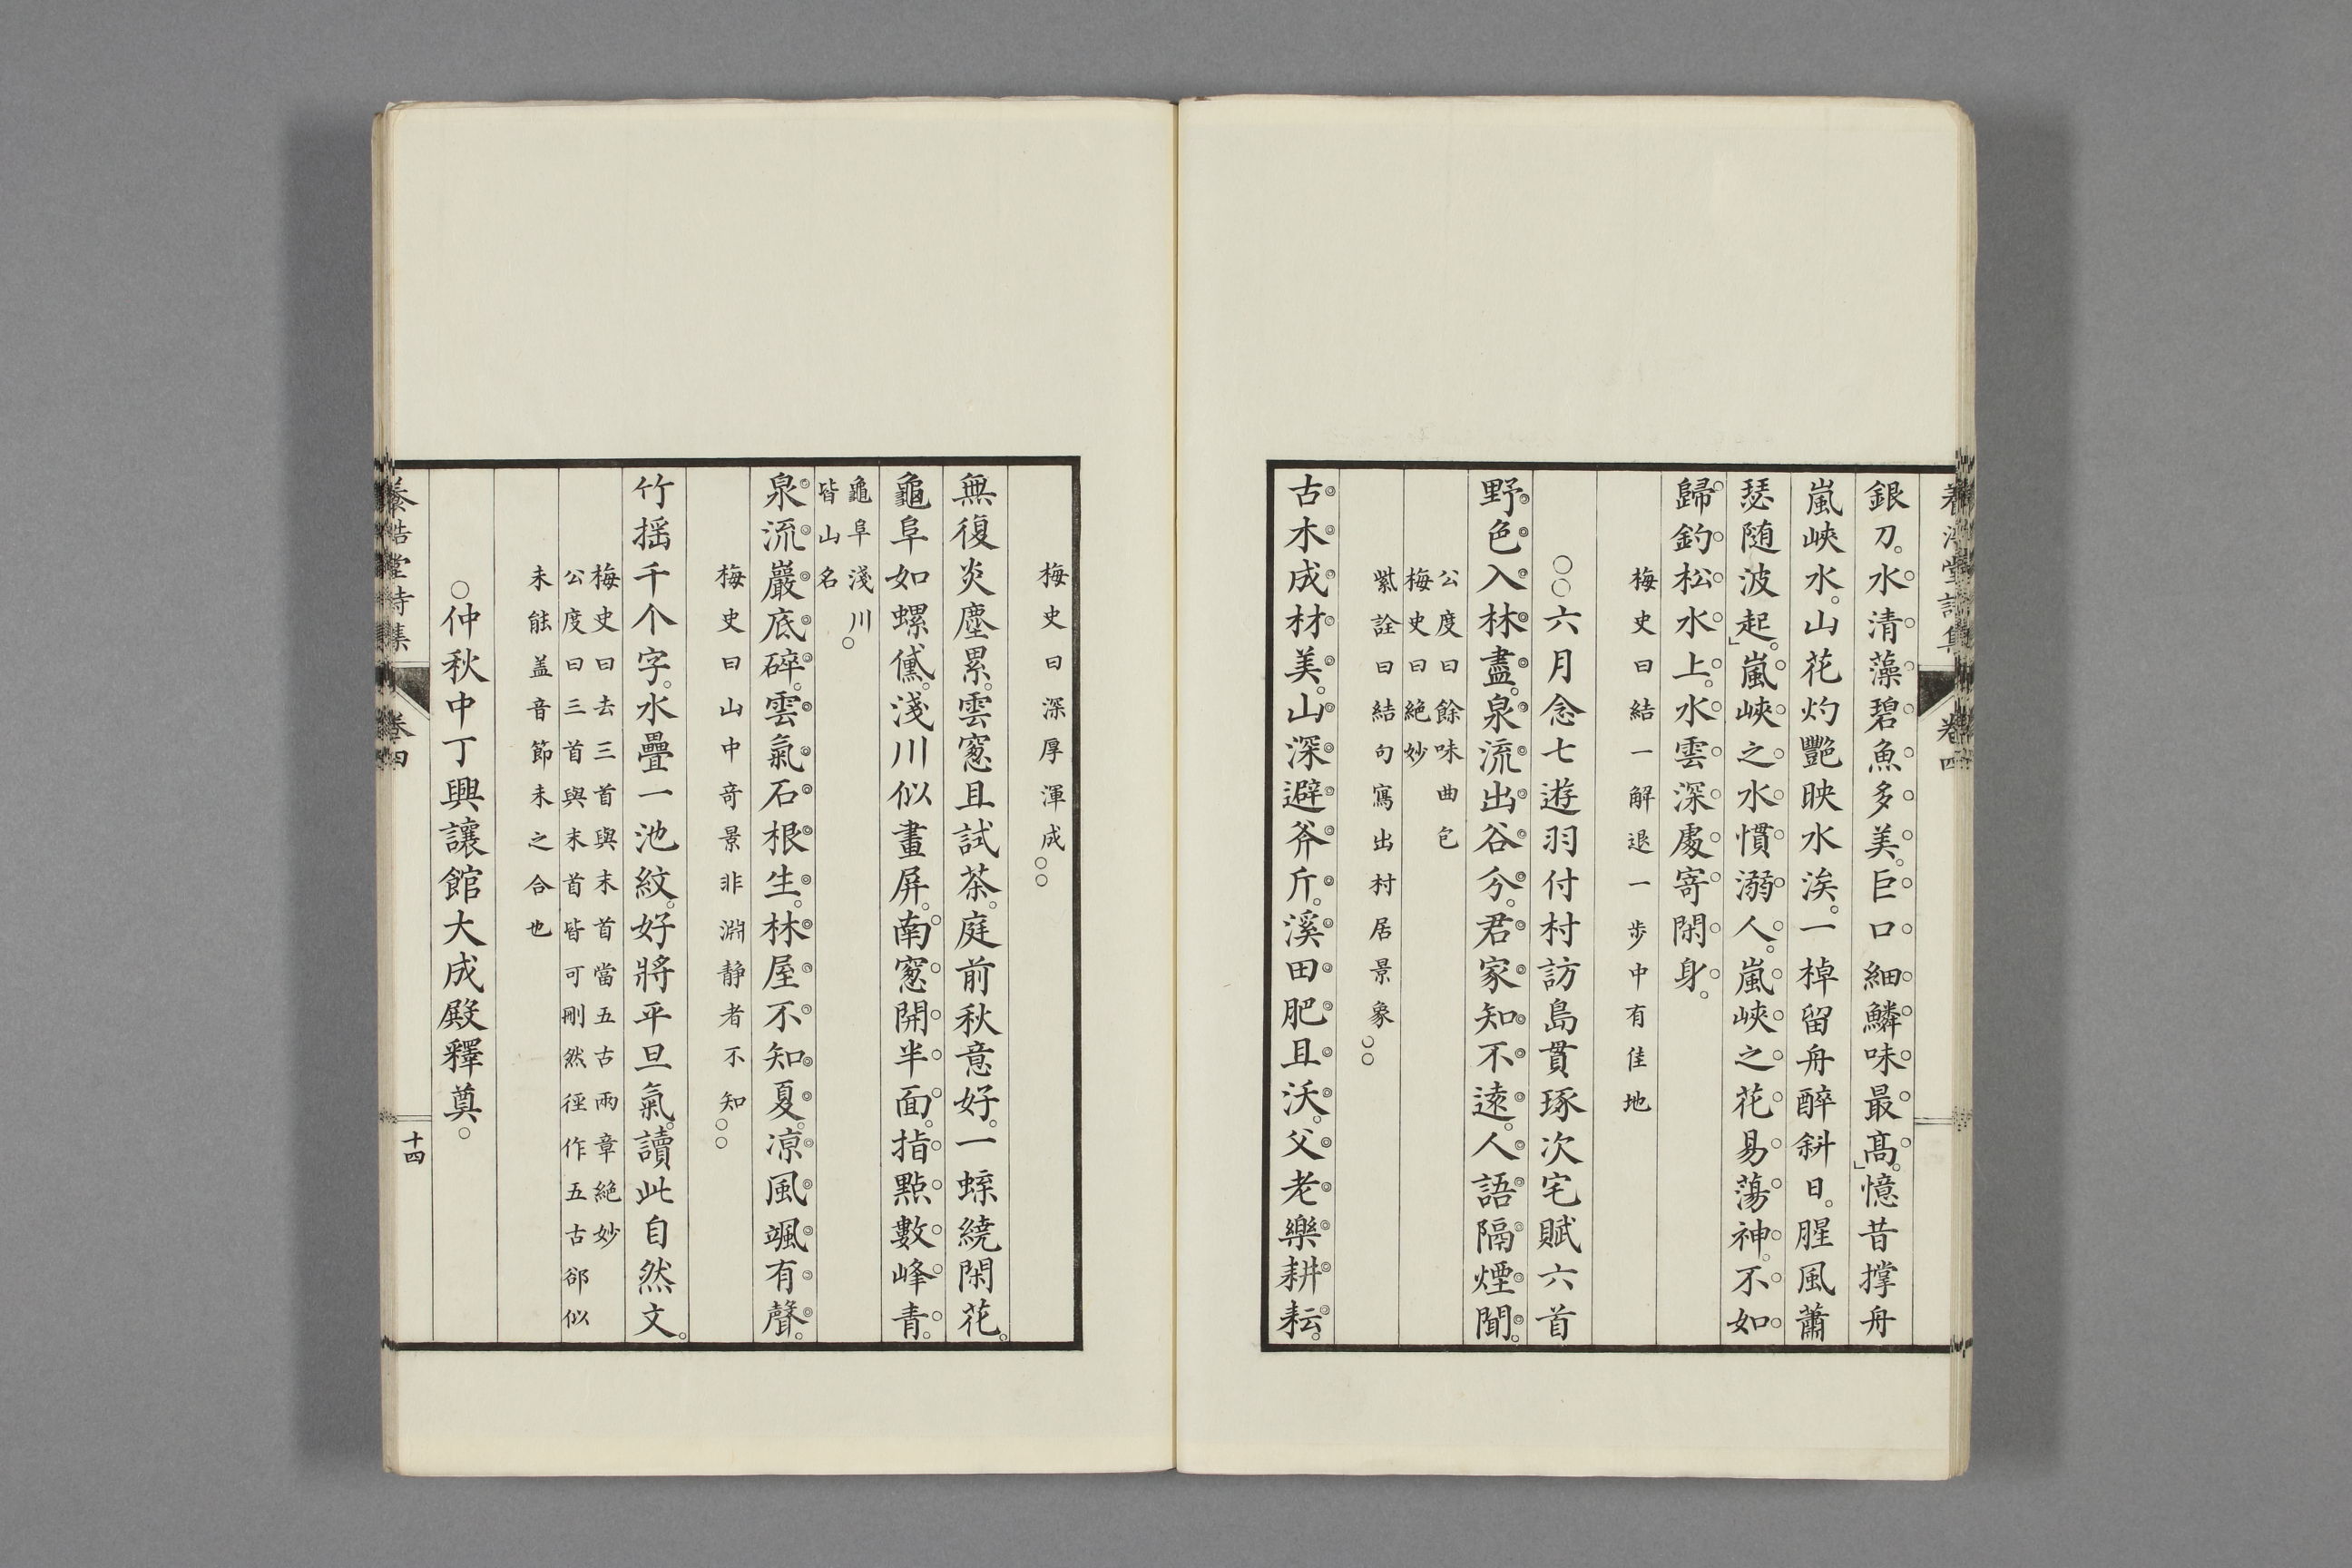 銀刀。水清藻碧魚多美。巨口細鱗味最高。」憶昔撑舟
嵐峽水。山花灼艷映水涘。一棹留舟醉斜日。腥風蕭
瑟随波起。」嵐峽之水慣溺人。嵐峽之花易蕩神。不如
歸釣松水上。水雲深處寄閑身。
梅史曰結一解退一步中有佳地
○○六月念七遊羽付村訪島貫琢次宅賦六首
野色入林盡。泉流出谷分。君家知不遠。人語隔煙聞。
公度曰餘味曲包
梅史曰絶妙
紫詮曰結句寫出村居景象○○
古木成材美。山深避斧斤。溪田肥且沃。父老樂耕耘。
卷四
梅史曰深厚渾成○○
無復炎塵累。雲窓且試茶。庭前秋意好。一蝶繞閑花。
龜阜如螺黛。淺川似畫屏。南窓開半面。指點數峰青。
龜阜淺川
皆山名○
泉流巖底碎。雲氣石根生。林屋不知夏。凉風颯有聲。
梅史曰山中奇景非淵静者不知○○
竹揺千个字。水疊一池紋。好將平旦氣。讀此自然文。
梅史曰去三首與末首當五古兩章絶妙
公度曰三首與末首皆可刪然徑作五古郤似
未能盖音節未之合也
○仲秋中丁興讓館大成殿釋奠。
養浩堂詩集
卷四
十四